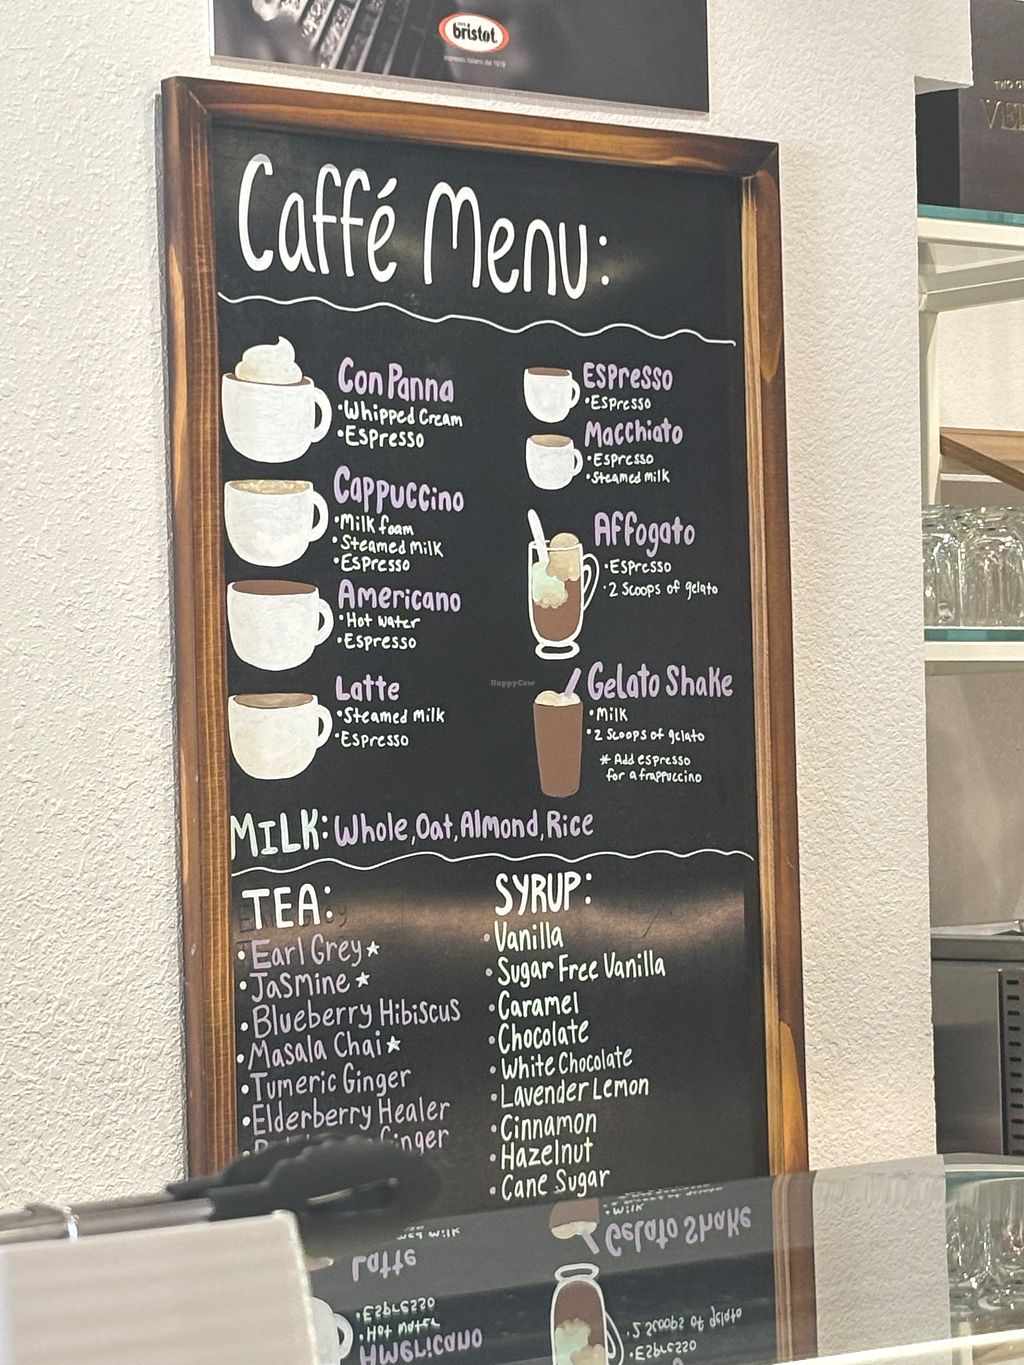 bristot
espresso italiano dal 1919
Caffé Menu:
Con Panna
•Whipped Cream
•Espresso
Cappuccino
•Milk foam
•Steamed Milk
•Espresso
Americano
•Hot water
•Espresso
Latte
•Steamed Milk
•Espresso
Espresso
•Espresso
Macchiato
•Espresso
•Steamed milk
Affogato
•Espresso
•2 Scoops of gelato
Gelato Shake
•Milk
•2 Scoops of gelato
* Add espresso
for a frappuccino
HappyCow
MILK: Whole, Oat, Almond, Rice
TEA:
•Earl Grey★
•Jasmine★
•Blueberry Hibiscus
•Masala Chai★
•Tumeric Ginger
•Elderberry Healer
Ginger
SYRUP:
•Vanilla
•Sugar Free Vanilla
•Caramel
•Chocolate
•White Chocolate
•Lavender Lemon
•Cinnamon
•Hazelnut
•Cane Sugar